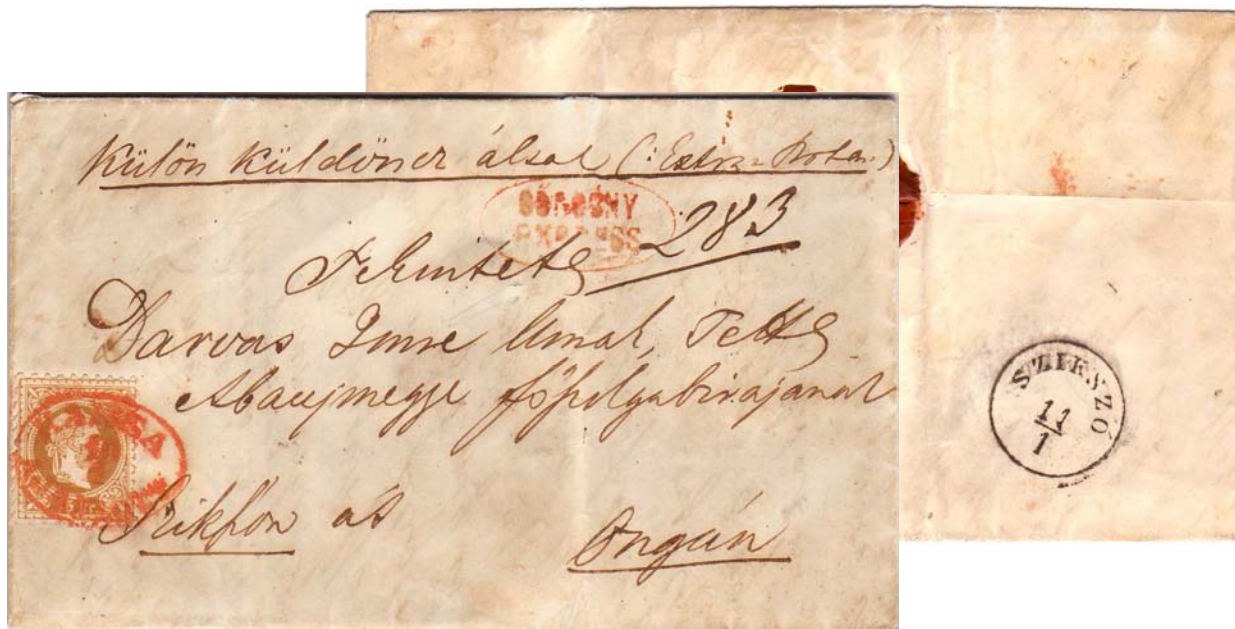 Külön küldöncz által (: Extra-Botan :)
SÜRGŐNY
EXPRESS
283
Tekintetes
Darvas Imre Urnak, Tette
Abaujmegye főszolgabirajanak
Szikszón át
Ongán
SZIKSZÓ
11
1